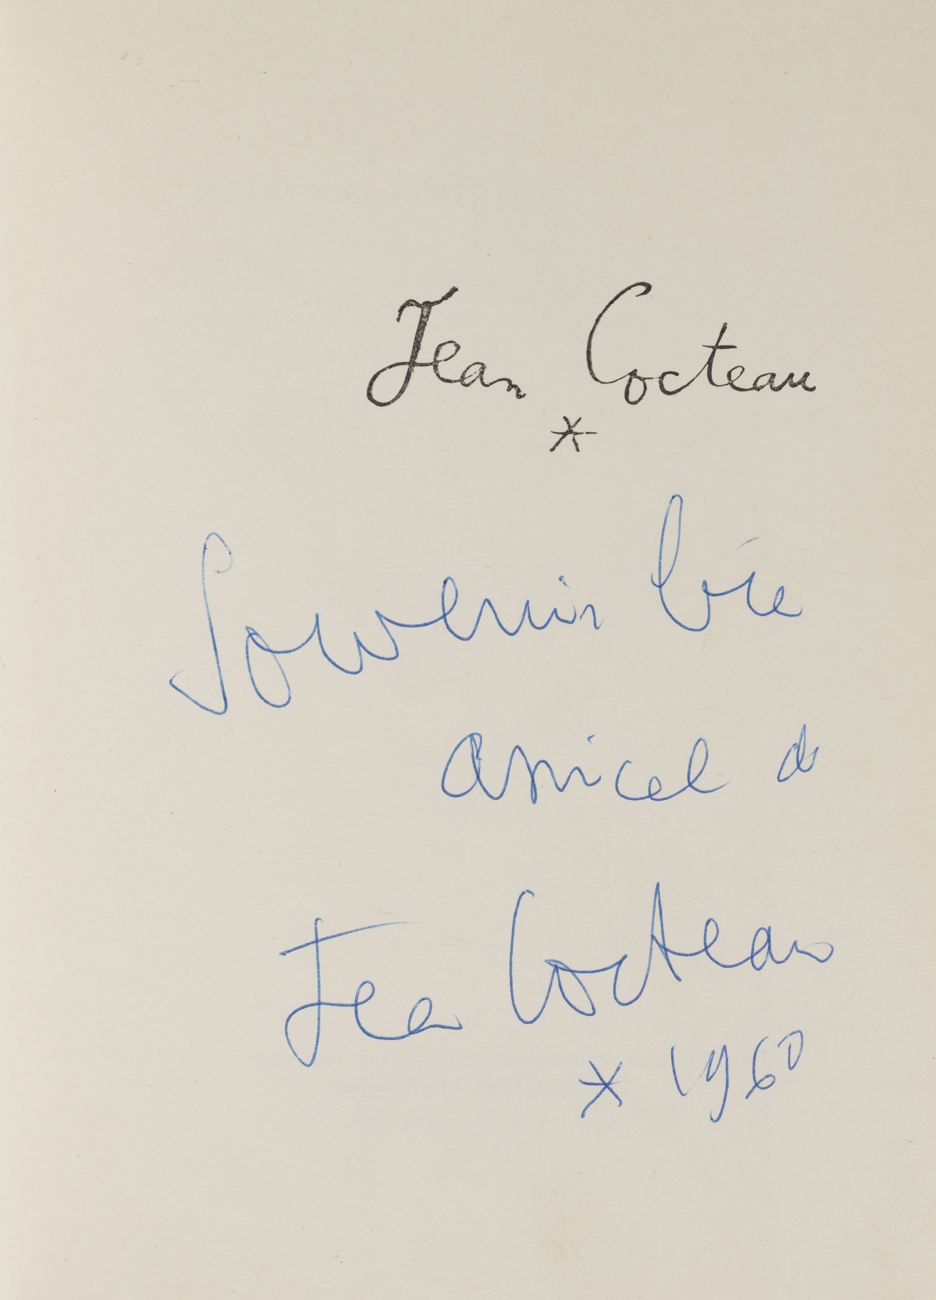 Jean Cocteau
*
Souvenir bien
amical de
Jean Cocteau
* 1960